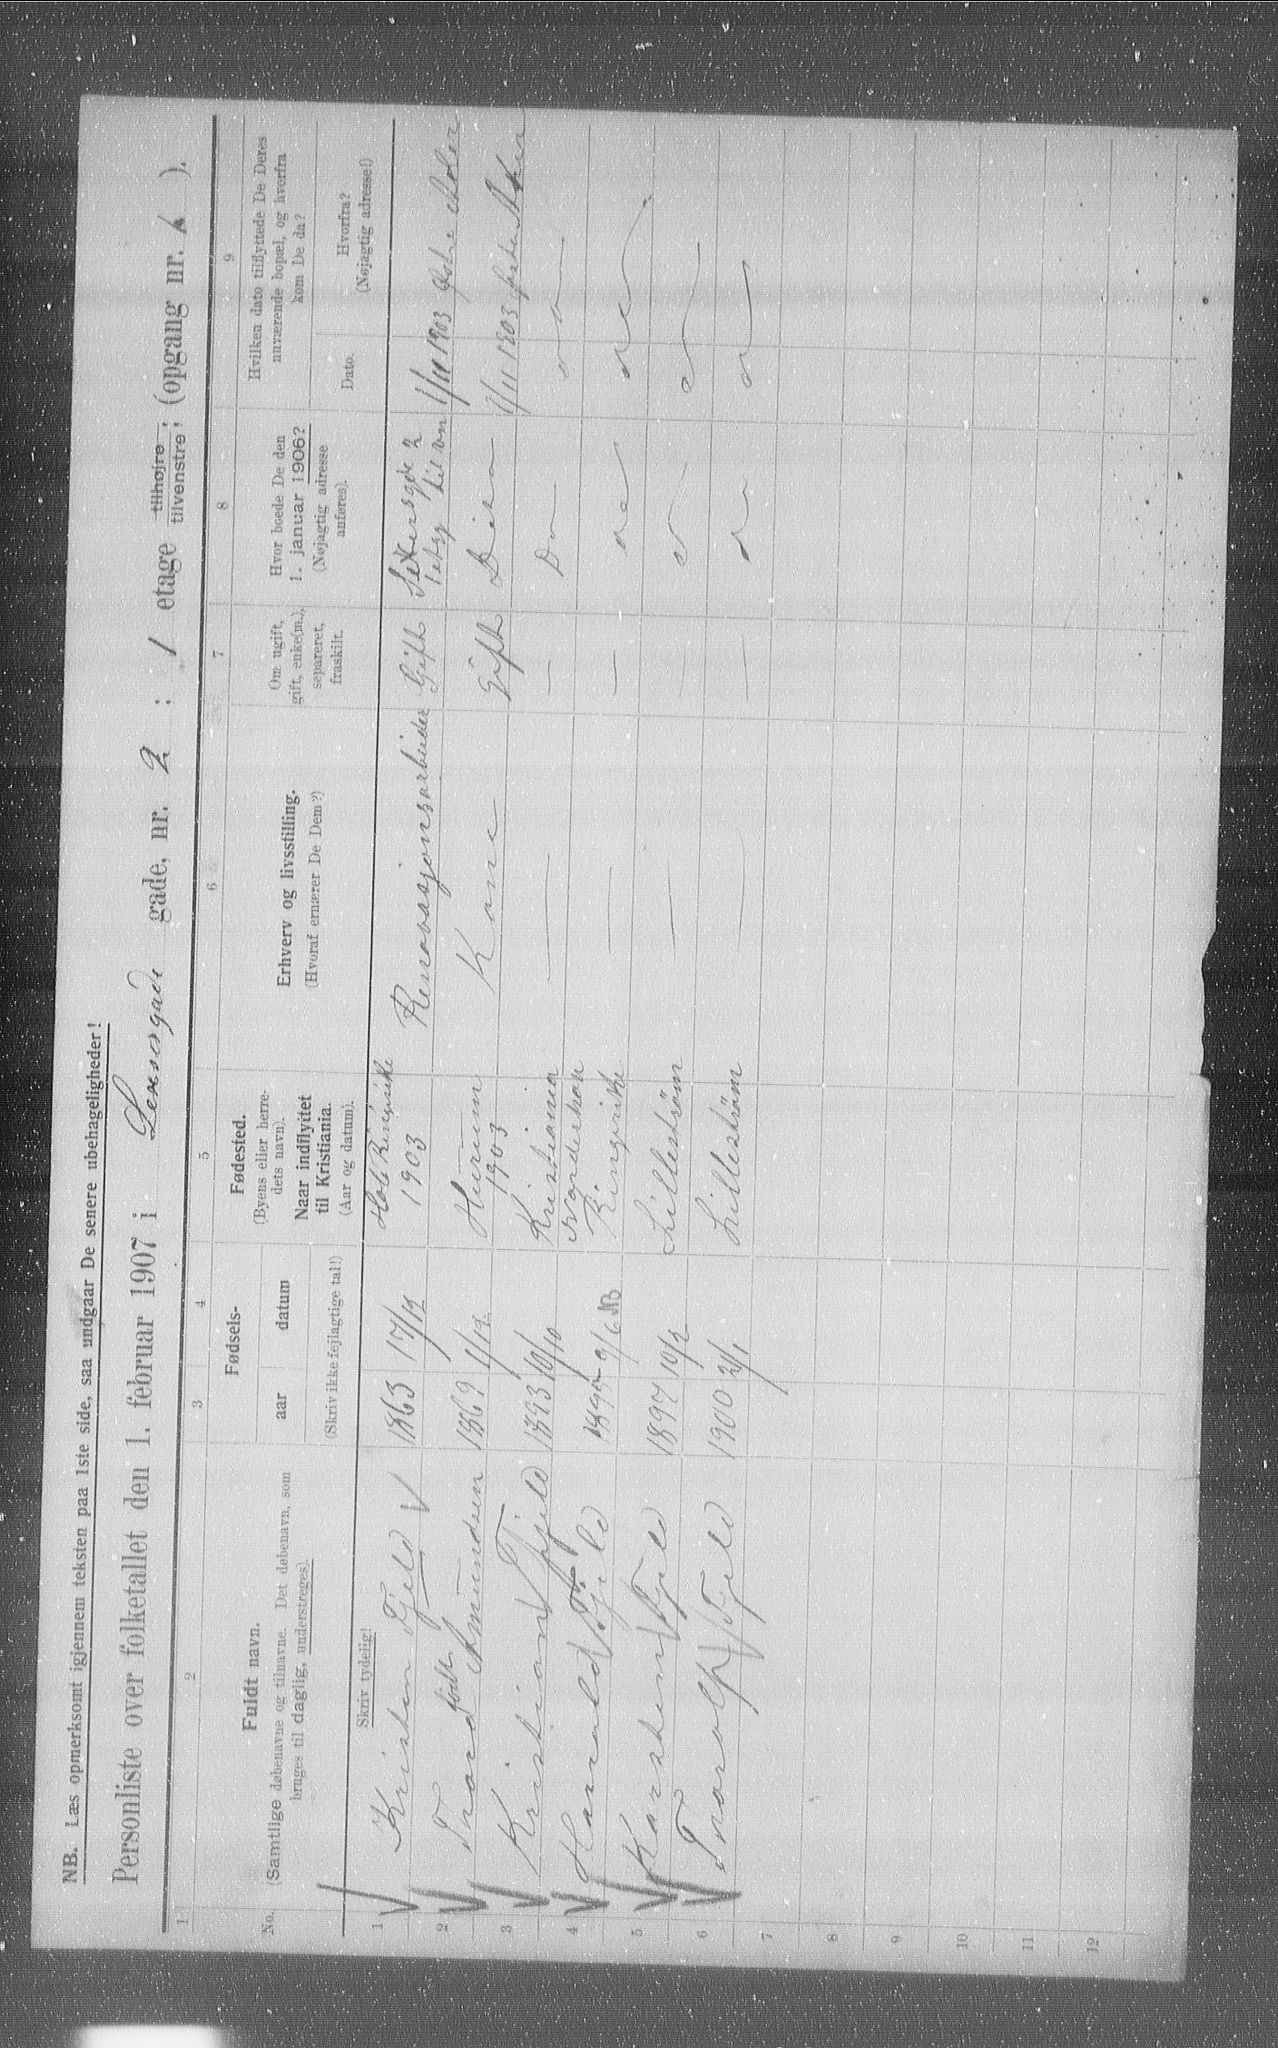 NB. Læs opmerksomt igjennem teksten paa 1ste side, saa undgaar De senere ubehageligheder!
Personliste over folketallet den 1. februar 1907 i gade, nr. 2 ; 1 etage tilhøjre, tilvenstre, (opgang nr. ).
1 2 3 4 5 6 7 8 9
No.
Fuldt navn.
(Samtlige døbenavne og tilnavne. Det døbenavn, som
bruges til daglig, understreges).
Skriv tydelig!
Fødsels-
aar datum
(Skriv ikke fejlagtige tal!)
Fødested.
(Byens eller herre-
dets navn).
Naar indflyttet
til Kristiania.
(Aar og datum).
Erhverv og livsstilling.
(Hvoraf ernærer De Dem?)
Om ugift,
gift, enke(m.),
separeret,
fraskilt.
Hvor boede De den
1. januar 1906?
(Nøjagtig adresse
anføres).
Hvilken dato tilflyttede De Deres
nuværende bopæl, og hvorfra
kom De da?
Dato.
Hvorfra?
(Nøjagtig adresse!)
1 Kristen Fjeld 1863 17/12 Hole Ringerike 1903 Renovasjonsarbeider Gift 1/11 1903
2 født Amundsen 1869 1/12 Hurum 1903 Kone Gift Dito 1/11 1903 Aker
3 Kristian Fjeld 1893 10/10 Kristiania — — Do
4 Harald Fjeld 1895 9/6 NB Norderhov Ringerike — — do
5 Karsten Fjeld 1897 10/2 Lillestrøm — —
6 Toralf Fjeld 1900 2/1 Lillestrøm — —
7
8
9
10
11
12